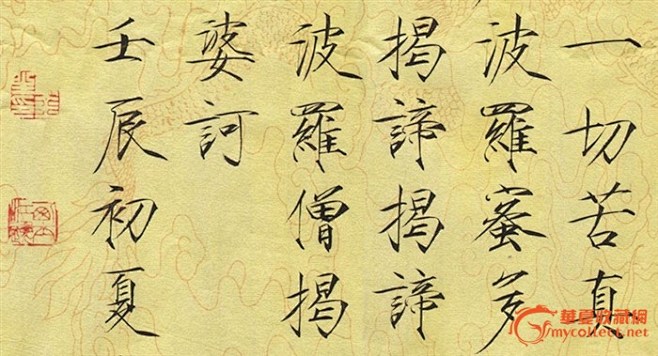 一切苦真
波羅蜜多
揭諦揭諦
波羅僧揭
婆訶
壬辰初夏
華夏收藏網
mycollect.net